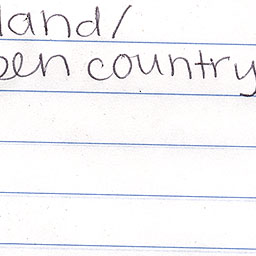 land/
pen country